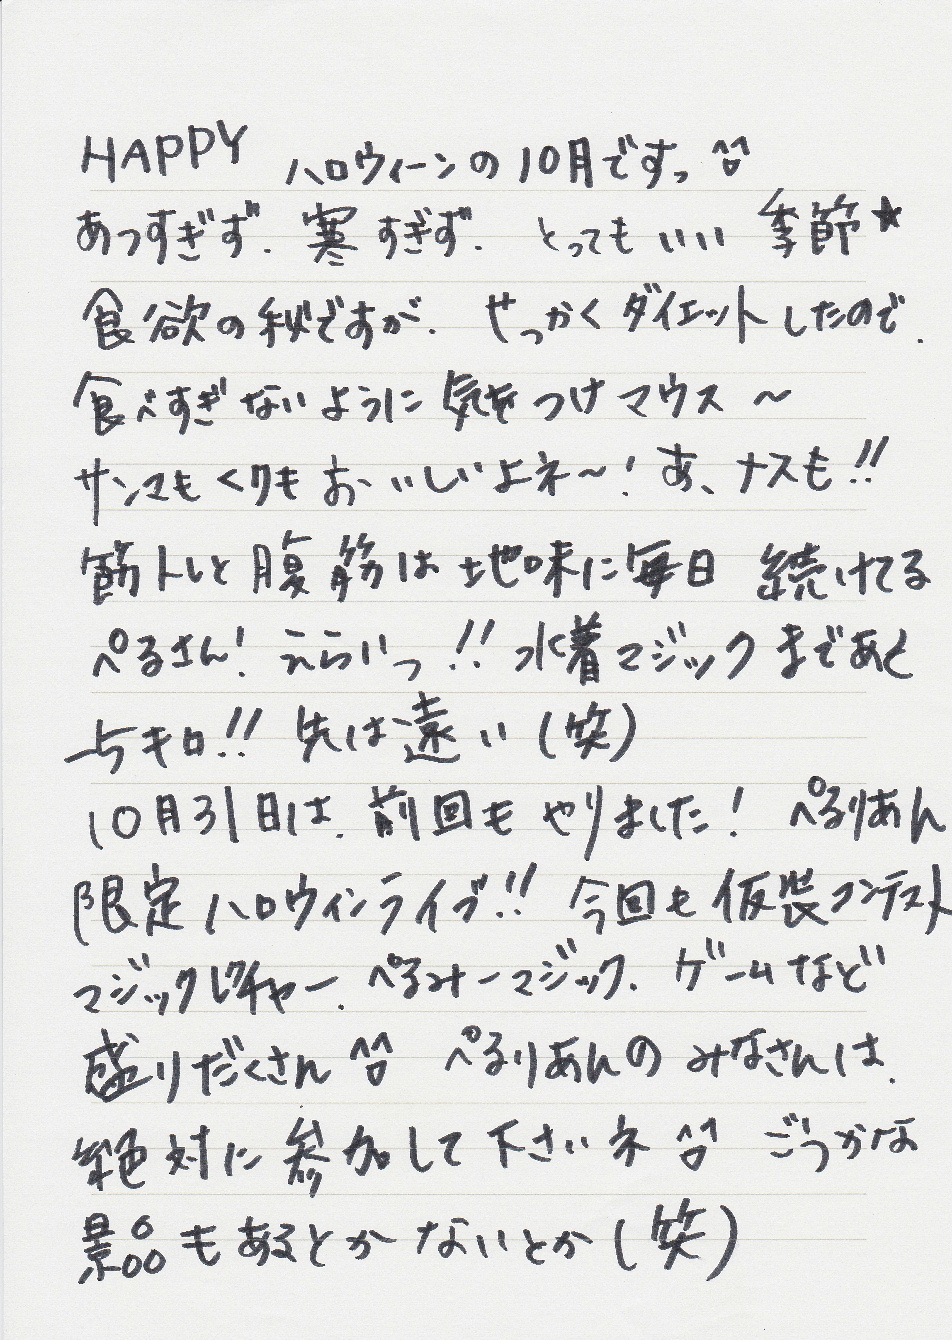 HAPPY ハロウィーンの10月ですっ^^
あつすぎず、寒すぎず、とってもいい季節★
食欲の秋ですが、せっかくダイエットしたので、
食べすぎないように気をつけマウス〜
サンマもくりもおいしいよネ〜！あ、ナスも!!
筋トレと腹筋は地味に毎日続けてる
ぺるさん！えらいっ!!水着マジックまであと
5キロ!!先は遠い(笑)
10月31日は、前回もやりました！ぺるりあん
限定ハロウィンライブ!!今回も仮装コンテスト
マジックレクチャー、ぺるみーマジック、ゲームなど
盛りだくさん^^ぺるりあんのみなさんは、
絶対に参加して下さいネ^^ごうかな
景品もあるとかないとか(笑)